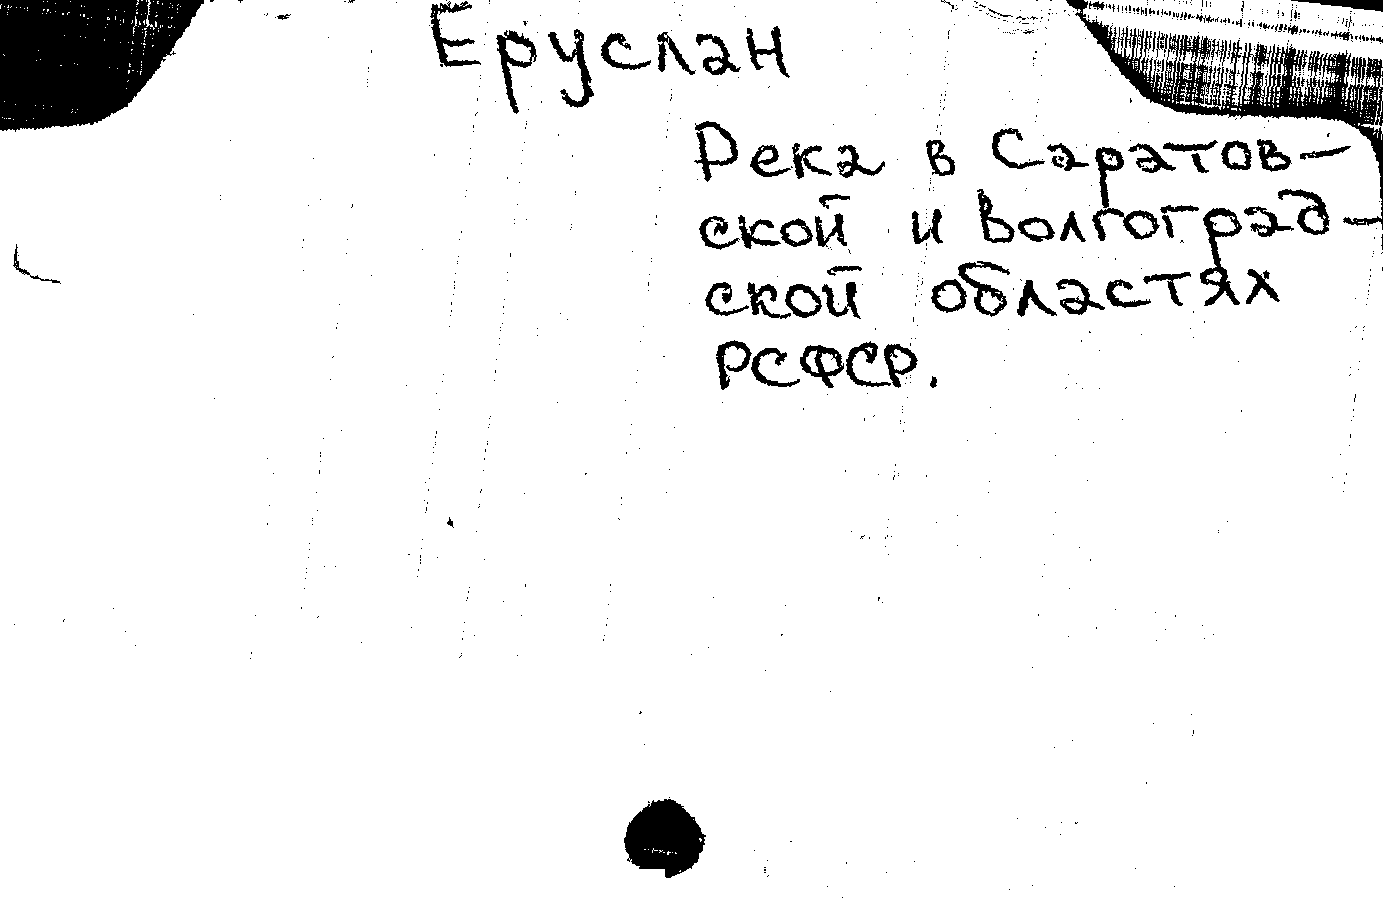 Еруслан
Река в Саратов-
ской и Волгоград-
ской областях
РСФСР.